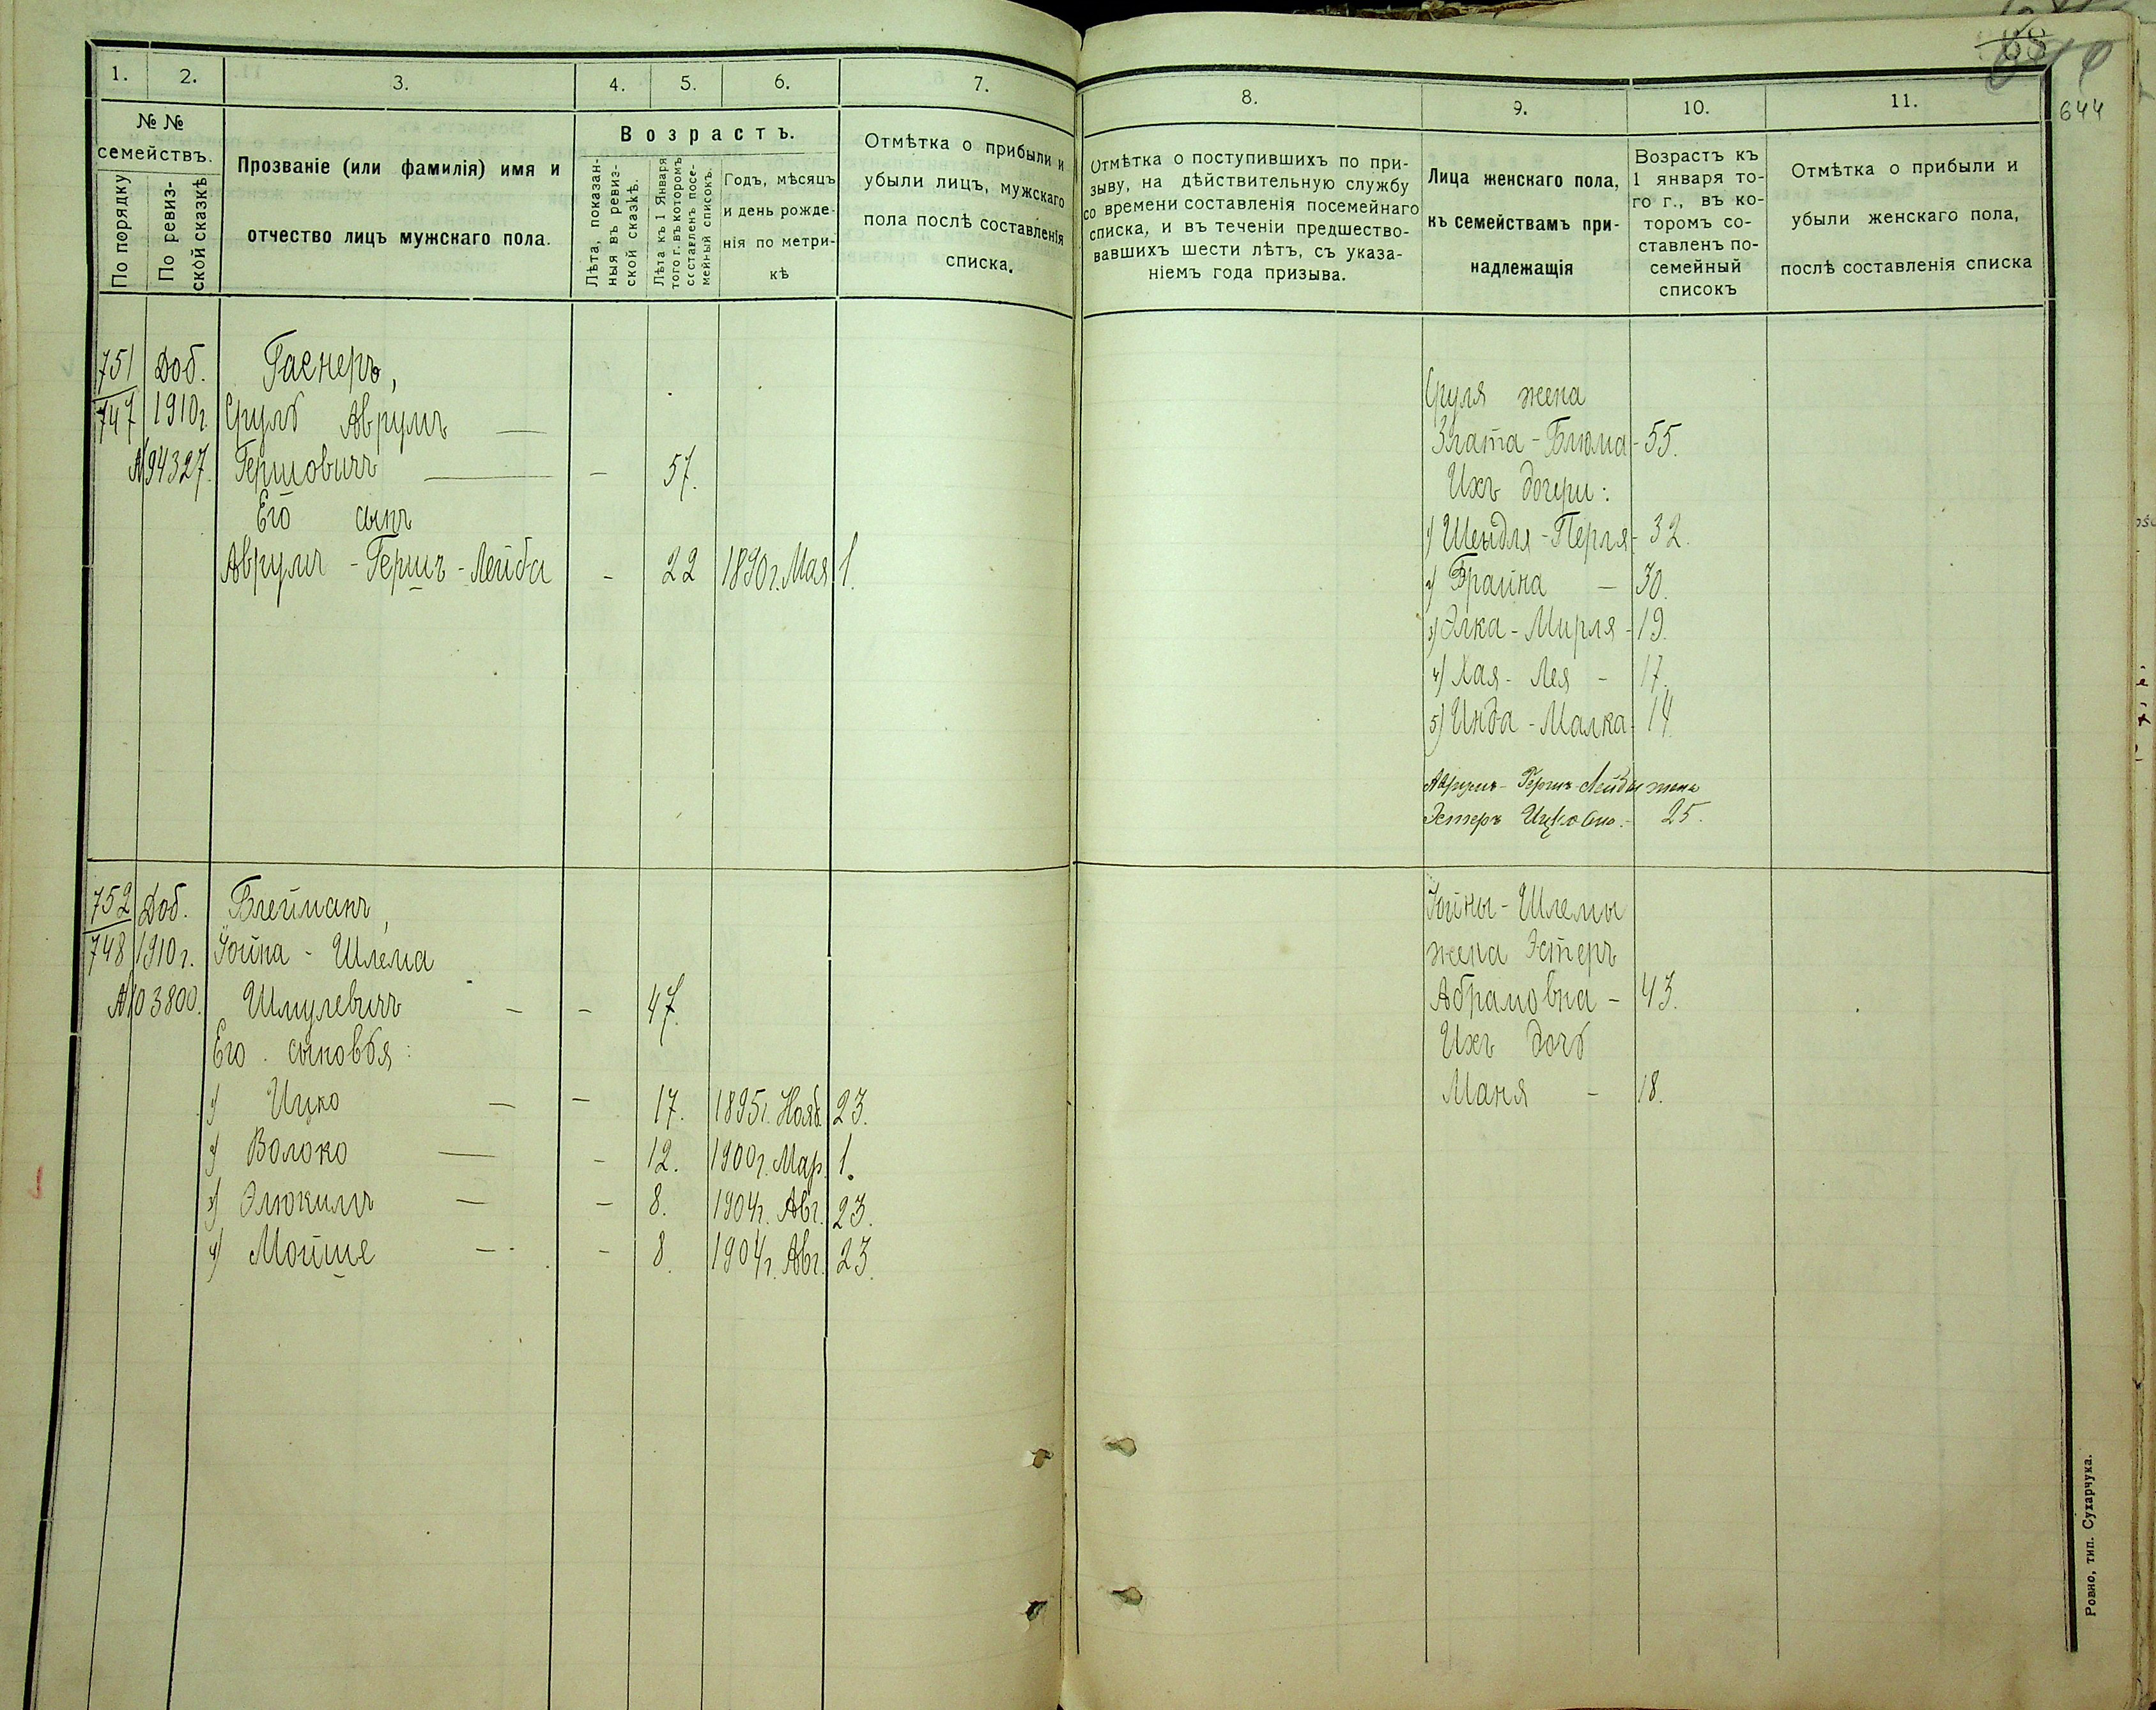 644
1. 2. 3. 4. 5. 6. 7.
№ №
семействъ.
По порядку
По ревиз-
ской сказкѣ
Прозваніе (или фамилія) имя и
отчество лицъ мужскаго пола.
Возрастъ.
Лѣта, показан-
ныя въ ревиз-
ской сказкѣ.
Лѣта къ 1 Января
того г. въ которомъ
составленъ посе-
мейный списокъ.
Годъ, мѣсяцъ
и день рожде-
нія по метри-
кѣ
Отмѣтка о прибыли и
убыли лицъ, мужскаго
пола послѣ составленія
списка.
751 Доб. Гаснеръ,
747 1910г. Сруль Аврумъ —
№ 94327. Гершовичъ — - 57.
Его сынъ
Аврумъ - Гершъ - Лейба - 22 1890г. Мая 1.
752 Доб. Блейманъ,
748 1910г. Йойна - Шлема
№ 103800. Шмулевичъ - - 47.
Его сыновья:
1) Ицко — - 17. 1895г. Нояб. 23.
2) Волоко — - 12. 1900г. Мар. 1.
3) Элюкимъ — - 8. 1904г. Авг. 23.
4) Мойше - - 8. 1904г. Авг. 23.
8. 9. 10. 11.
Отмѣтка о поступившихъ по при-
зыву, на дѣйствительную службу
со времени составленія посемейнаго
списка, и въ теченіи предшество-
вавшихъ шести лѣтъ, съ указа-
ніемъ года призыва.
Лица женскаго пола,
къ семействамъ при-
надлежащія
Возрастъ къ
1 января то-
го г., въ ко-
торомъ со-
ставленъ по-
семейный
списокъ
Отмѣтка о прибыли и
убыли женскаго пола,
послѣ составленія списка
Сруля жена
Злата - Блюма - 55.
Ихъ дочери:
1) Шейдля - Перля - 32.
2) Брайна — 30.
3) Элка - Мирля - 19.
4) Хая - Лея - 17.
5) Инда - Малка - 14.
Аврумъ - Гершъ Лейбы жена
Эстеръ Ицковна. - 25.
Йойны - Шлемы
жена Эстеръ
Абрамовна - 43.
Ихъ дочь
Маня - 18.
Ровно, тип. Сухарчука.